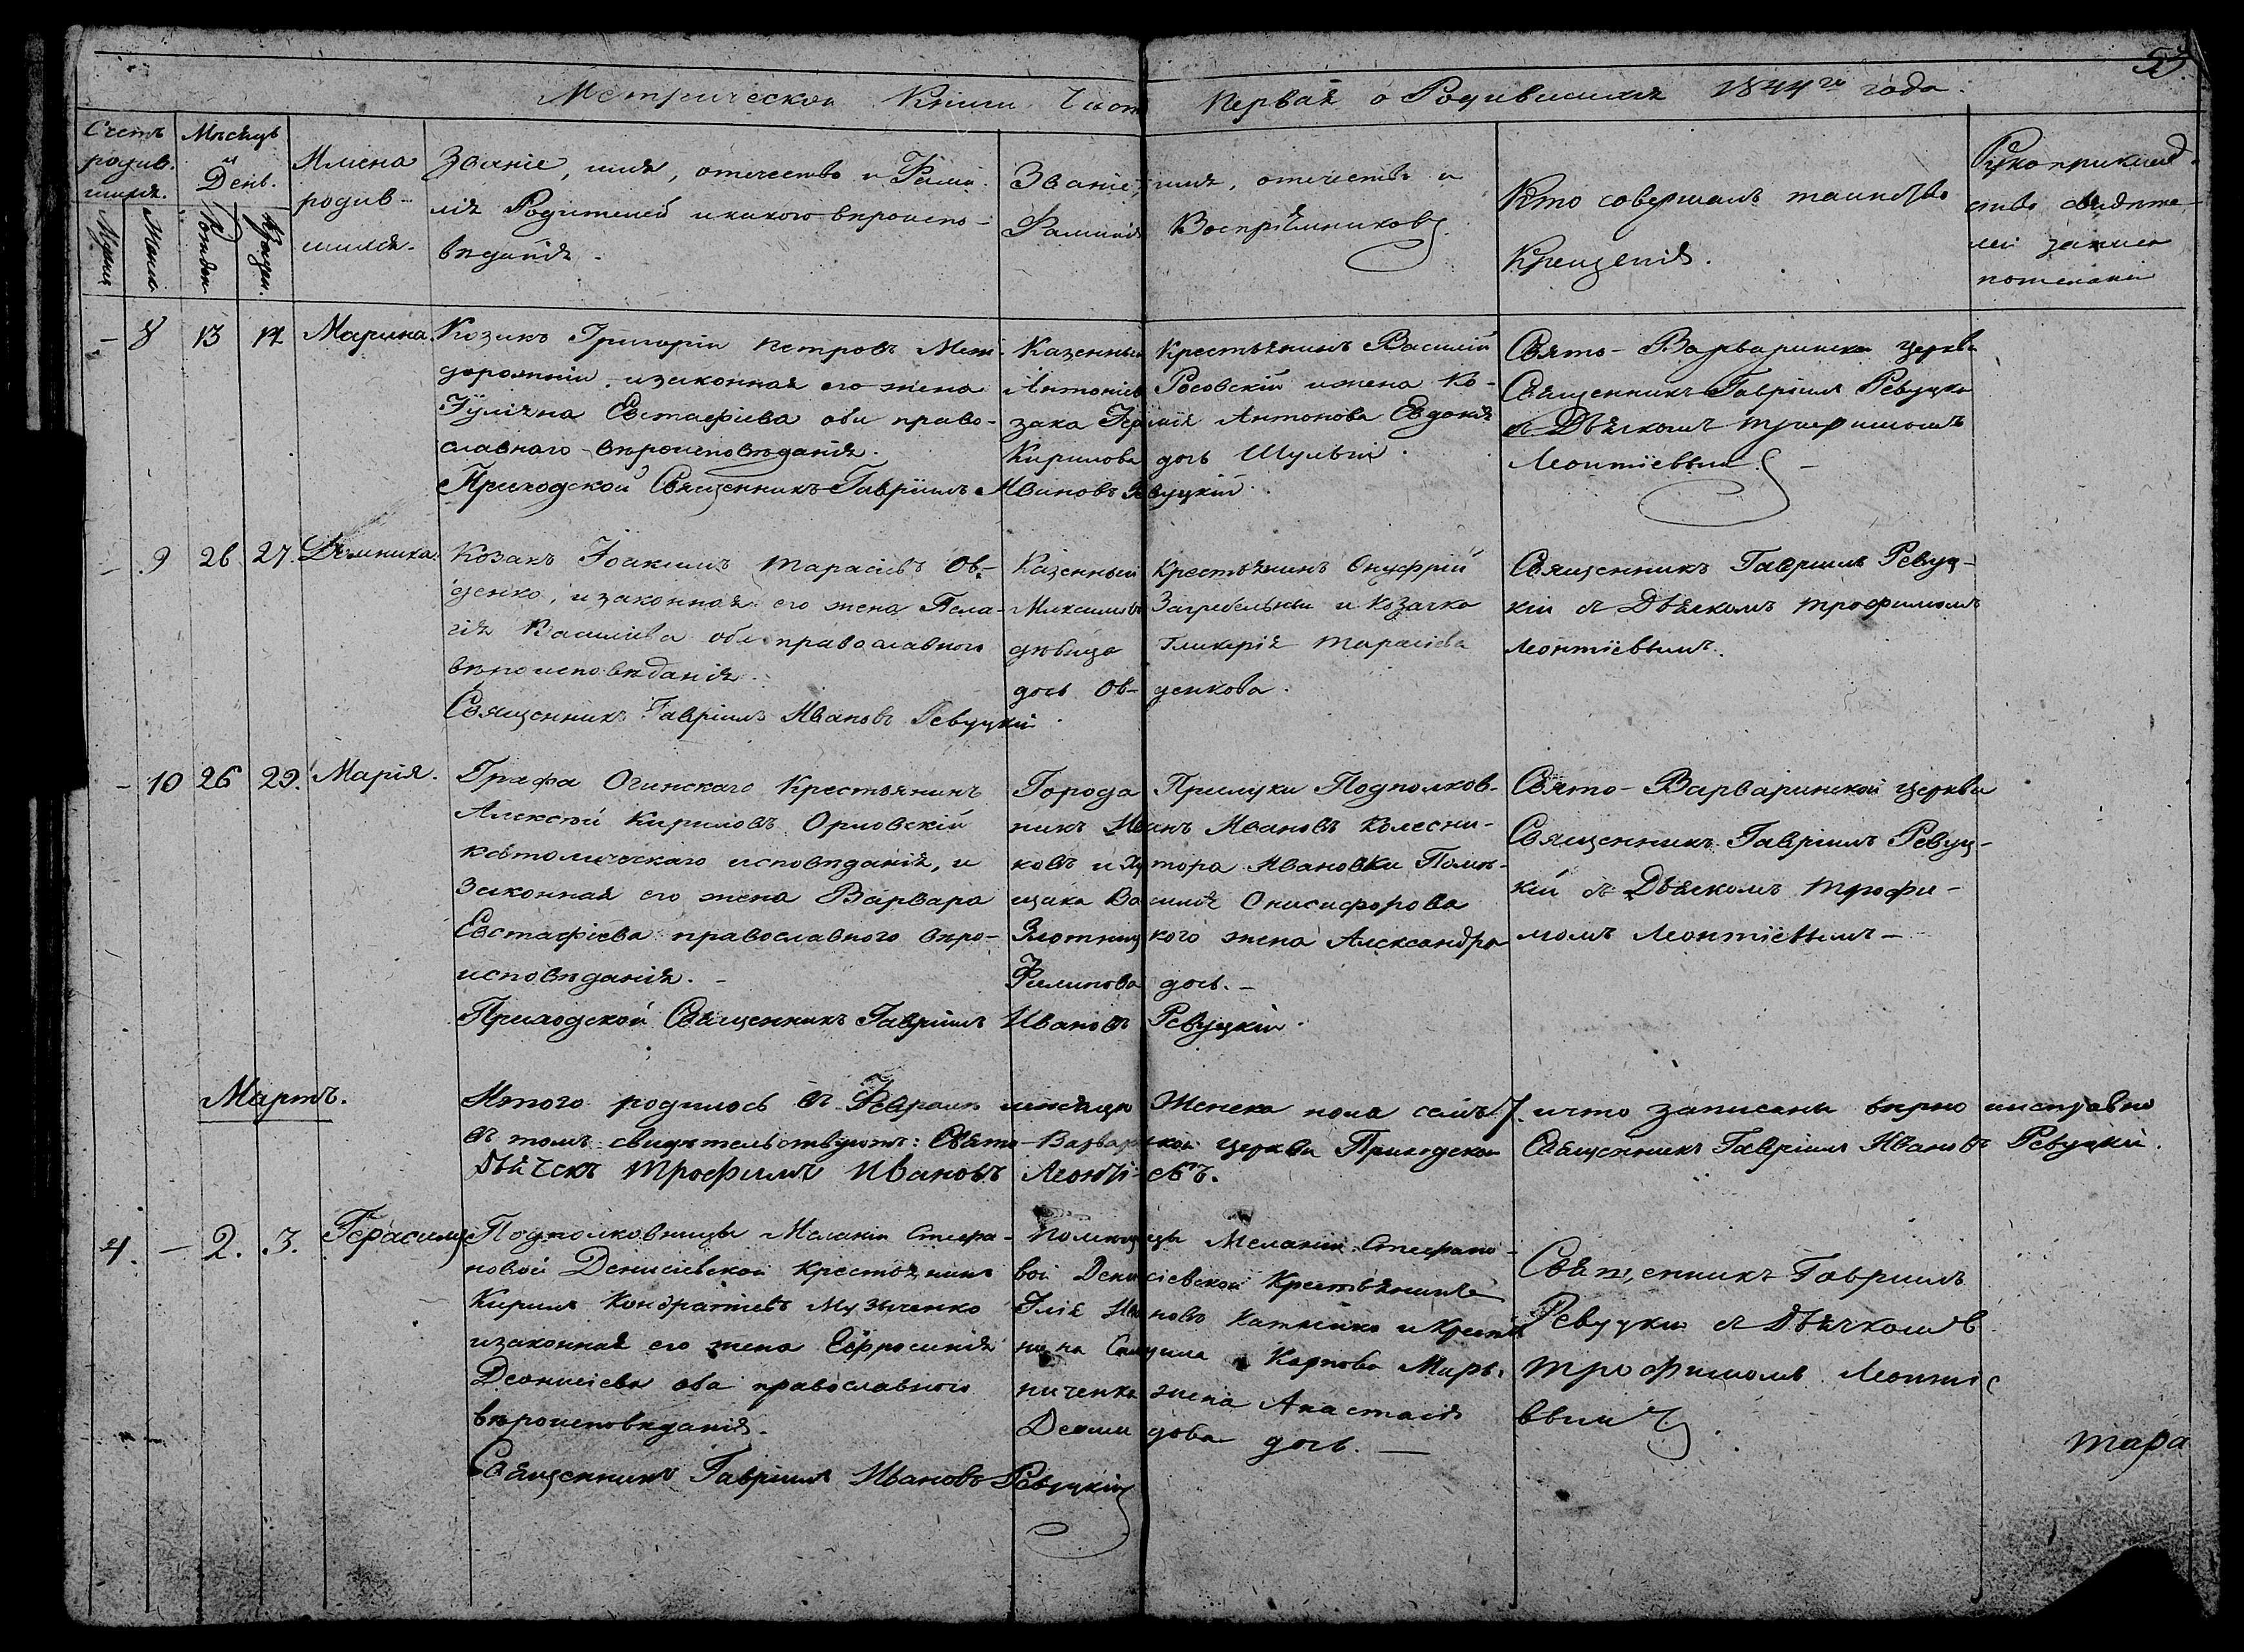 53.
Метрической Книги Часть Первая о Родившихся 1844го года.
Счетъ родив- шихся.
Мѣсяцъ и День.
Имена родив- шихся.
Званіе, имя, отечество и Фами-
лія Родителей и какого вѣроиспо-
вѣданія.
Званіе, имя, отечество и
Фамилія Воспріемниковъ.
Кто совершалъ таинство
Крещенія.
Рукоприклад-
ство свидѣте-
лей записи
по желанію
- 8 13 14 Марина.
Козакъ Григорій Петровъ
и законная его жена
Іуліяна Евстафіева оби право-
славнаго вѣроисповѣданія.
Приходской Священникъ Гавріилъ Ивановъ Ревуцкій.
Казенный Крестьянинъ Василій
Антоніевъ Росовскій и жена Ко-
зака Антонова Евдокія
Кирилова дочь
Свято-Варваринской церкви
Священникъ Гавріилъ Ревуцкій
съ Дьячкомъ Трофимомъ
Леонтіевымъ.
- 9 26 27. Домника.
Козакъ Іоакимъ Тарасіевъ Ов-
денко, и законная его жена Пела-
гія Василіева оби православнаго
вѣроисповѣданія.
Священникъ Гавріилъ Ивановъ Ревуцкій.
Казенный Крестьянинъ Онуфрій
Максимовъ Загребельный и Козачка
дѣвица Гликерія Тарасіева
дочь Ов- денкова.
Священникъ Гавріилъ Ревуц-
кій съ Дьячкомъ Трофимомъ
Леонтіевымъ.
- 10 26 29. Марія.
Графа Огинскаго Крестьянинъ
Алексѣй Кириловъ Орловскій
католическаго исповѣданія, и
Законная его жена Варвара
Евстафіева православнаго вѣро-
исповѣданія. -
Приходской Священникъ Гавріилъ Ивановъ Ревуцкій.
Города Прилуки Подполков-
никъ Иванъ Ивановъ Колесни-
ковъ и Хутора Ивановки Помѣ-
щика Онисифорова
Злотницкого жена Александра
Филипова дочь. -
Свято-Варваринской церкви
Священникъ Гавріилъ Ревуц-
кій съ Дьячкомъ Трофи-
момъ Леонтіевымъ -
Мартъ.
Итого родилось въ Февралѣ мѣсяцѣ Женска пола семъ 7. и что записаны вѣрно и исправно
въ томъ свидѣтельствуютъ: Свято-Варваринской церкви Приходской Священникъ Гавріилъ Ивановъ Ревуцкій.
Дьячекъ Трофимъ Ивановъ Леонті- евъ.
4. - 2. 3. Герасимъ
Подполковницы Меланіи Стефа-
новой Денисіевской Крестьянинъ
Кирилъ Кондратіевъ Музыченко
и законная его жена Евфросинія
Деонисіева оба православнаго
вѣроисповѣданія.
Священникъ Гавріилъ Ивановъ Ревуцкій
Помѣщицы Меланіи Стефано-
вой Денисіевской Крестьянинъ
Ілія Ивановъ и Крестья-
нина Карпова Мирь-
ниченка жена Анастасія
дочь. -
Священникъ Гавріилъ
Ревуцкій съ Дьячкомъ
Трофимомъ Леонтіе
вымъ
тара